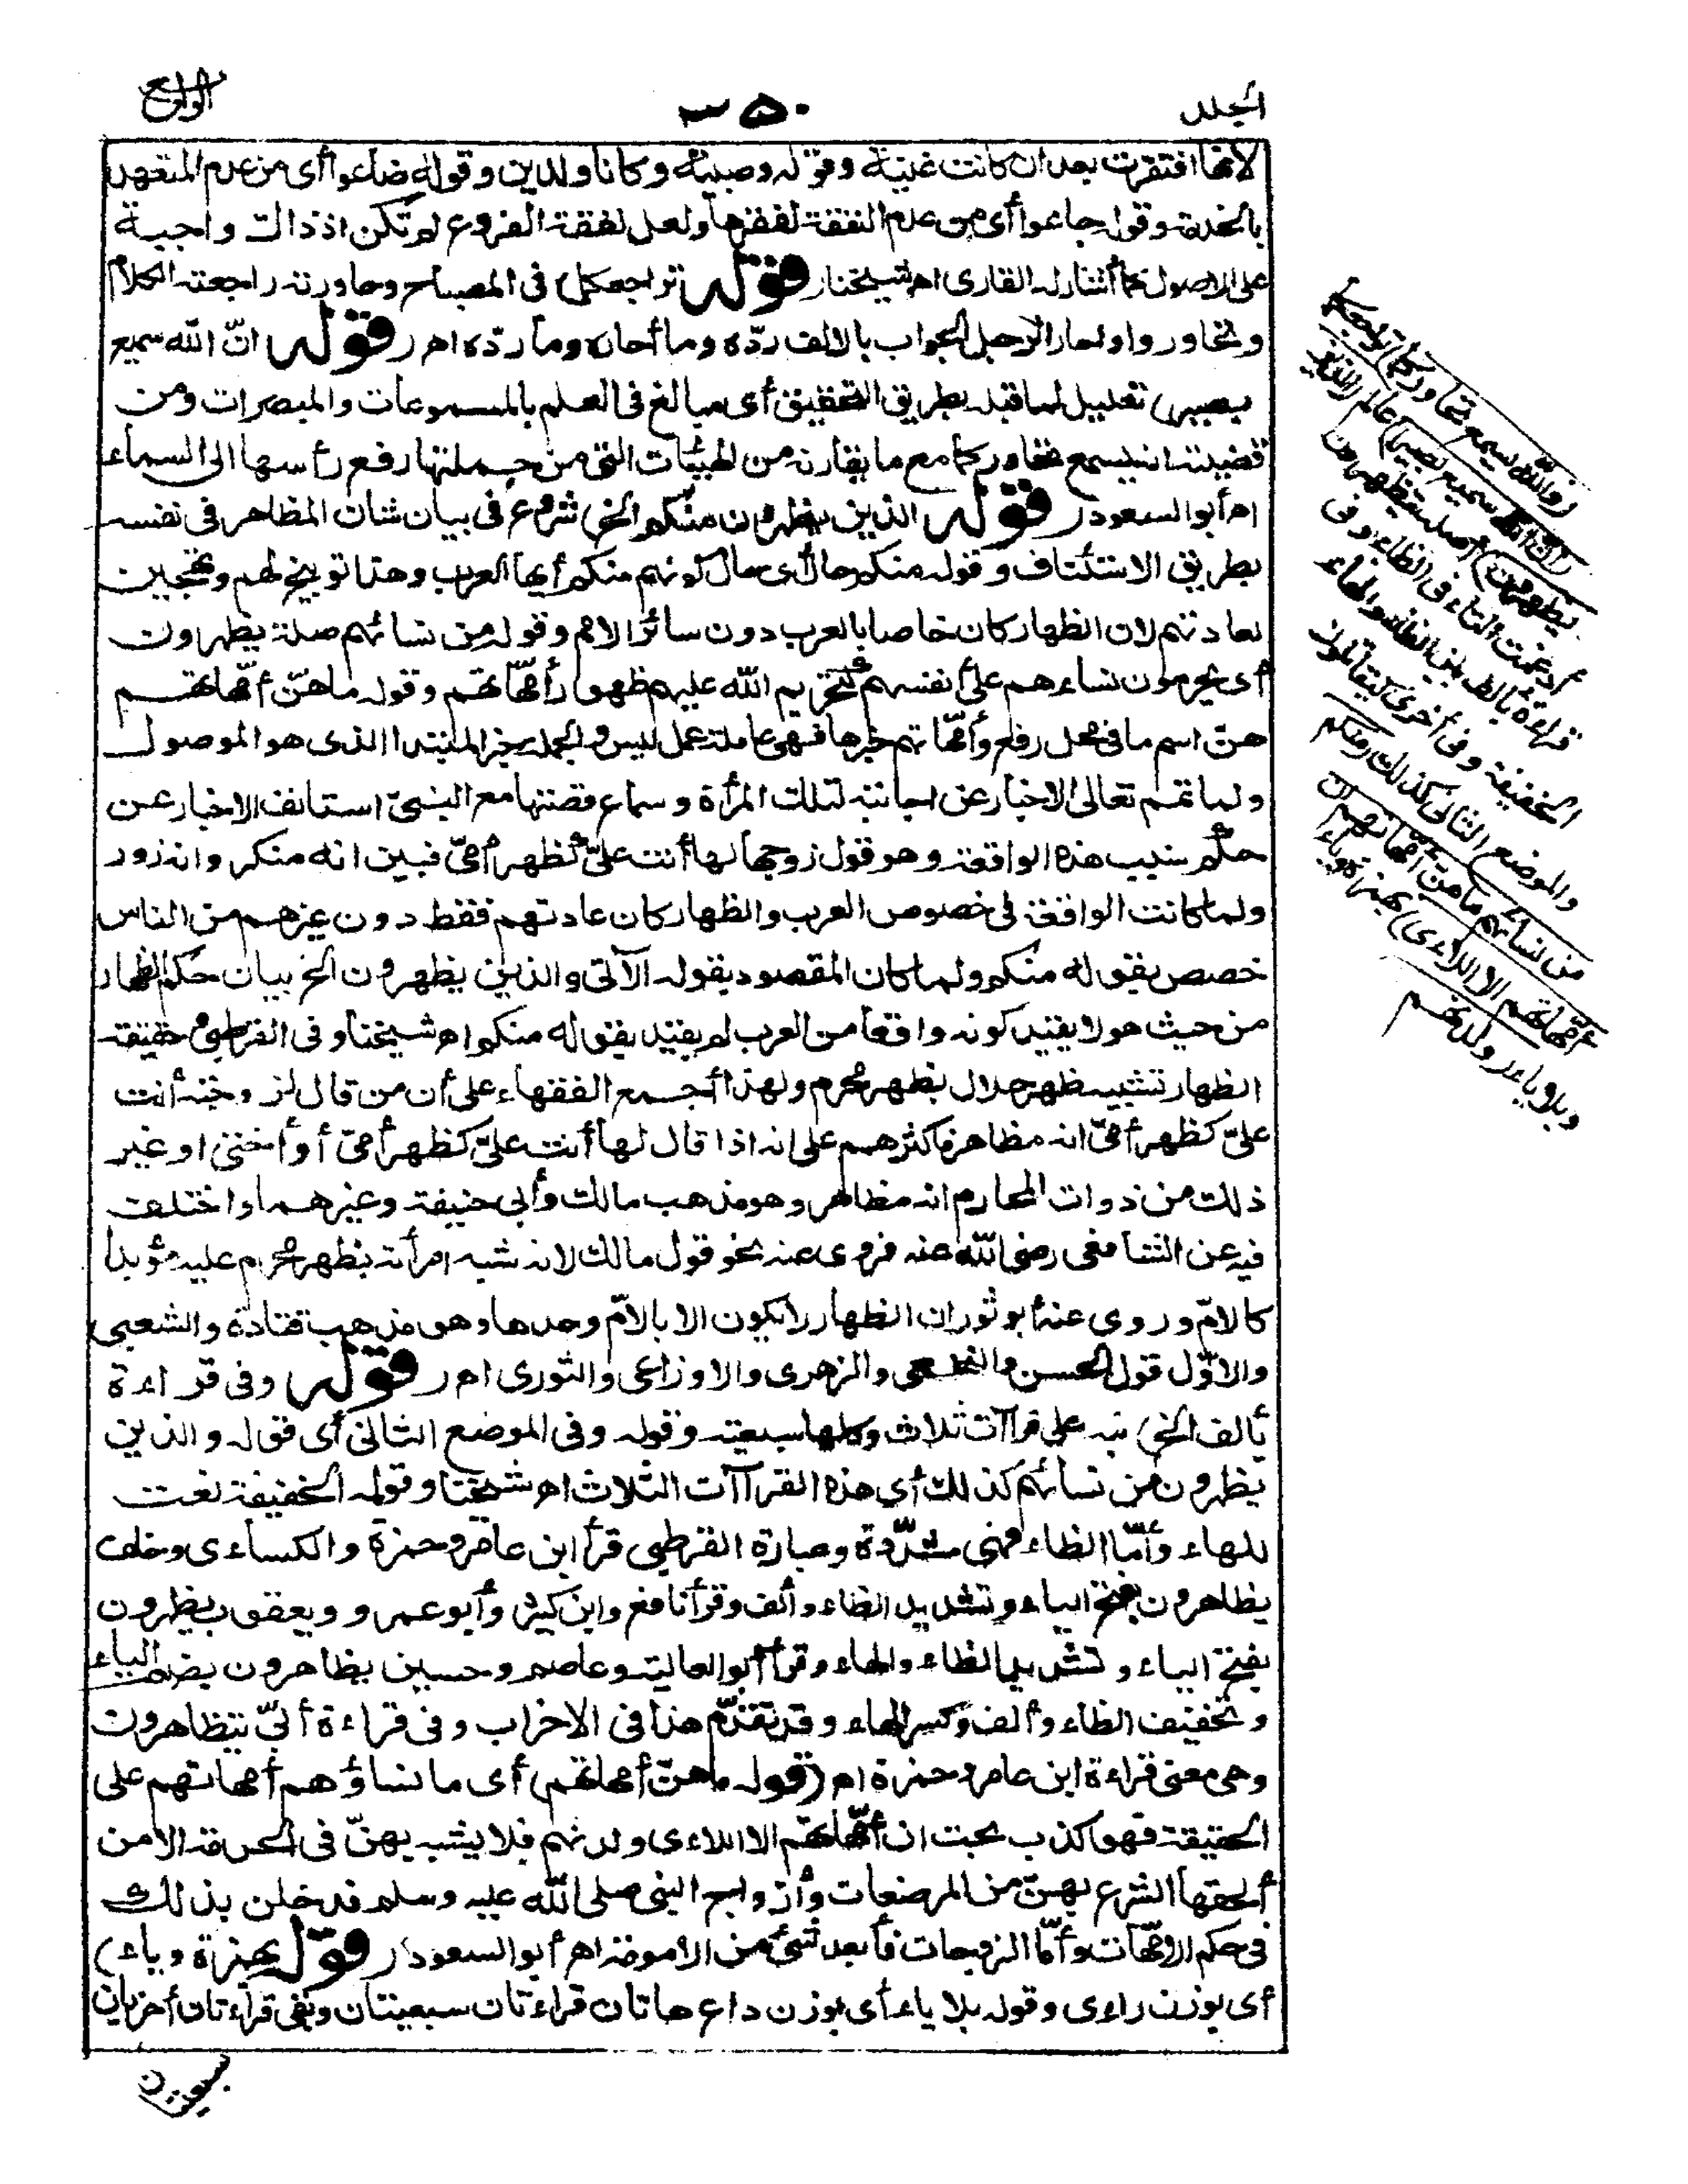 الجلد
٣٥٠
الرابع
لانها افتقرت بعد ان كانت غنية وقوله وصبية وكانا ولدين وقوله ضاعوا أى من عدم المتعهد
بالخدمة وقوله جاعوا أى من عدم النفقة لفقرها ولعل نفقة الفروع لم تكن اذ ذاك واجبة
على الاصول كما أشار له القارى اهـ شيخنا (قوله تراجعكما) فى المصباح وحاورته راجعته الكلام
وتحاوروا وأحار الرجل الجواب بالالف ردّه وما أحاره وما ردّه اهـ (قوله انّ الله سميع
بصير) تعليل لما قبله بطريق التحقيق أى مبالغ فى العلم بالمسموعات والمبصرات ومن
قضيته ان يسمع تحاوركما مع ما يقارنه من الهيئات التى من جملتها رفع رأسها الى السماء
اهـ أبو السعود (قوله الذين يظهرون منكم الخ) شروع فى بيان شان المظاهر فى نفسه
بطريق الاستئناف وقوله منكم حال أى حال كونهم منكم أيها العرب وهذا توبيخ لهم وتهجين
لعادتهم لان الظهار كان خاصا بالعرب دون سائر الامم وقوله من نسائهم صلة يظهرون
أى يحرمون نساءهم على أنفسهم كتحريم الله عليهم ظهور أمّهاتهم وقوله ما هنّ أمّهاتهم
هنّ اسم ما فى محل رفع وأمّهاتهم خبرها فهى عاملة عمل ليس والجملة خبر المبتدا الذى هو الموصول
ولما تمم تعالى الاخبار عن اجابته لتلك المرأة وسماع قصتها مع النبىّ استانف الاخبار عن
حكم سبب هذه الواقعة وهو قول زوجها لها أنت علىّ كظهر أمىّ فبين انه منكر وانه زور
ولما كانت الواقعة فى خصوص العرب والظهار كان عادتهم فقط دون غيرهم من الناس
خصص بقوله منكم ولما كان المقصود بقوله الآتى والذين يظهرون الخ بيان حكم الظهار
من حيث هو لا بقيد كونه واقعا من العرب لم يقيد بقوله منكم اهـ شيخنا وفى القرطبى حقيقة
الظهار تشبيه ظهر حلال بظهر محرم ولهذا أجمع الفقهاء على أن من قال لزوجته أنت
علىّ كظهر أمىّ انه مظاهر فأكثرهم على انه اذا قال لها أنت علىّ كظهر أمىّ أو أختى او غير
ذلك من ذوات المحارم انه مظاهر وهو مذهب مالك وأبى حنيفة وغيرهما واختلف
فيه عن الشافعى رضى الله عنه فروى عنه نحو قول مالك لانه شبه امرأته بظهر محرم عليه مؤبدا
كالامّ وروى عنه أبو ثور ان الظهار لا يكون الا بالامّ وحدها وهو مذهب قتادة والشعبى
والاوّل قول الحسن والنخعى والزهرى والاوزاعى والثورى اهـ (قوله وفى قراءة
بألف الخ) نبه على قراآت ثلاث وكلها سبعية وقوله وفى الموضع الثانى أى قوله والذين
يظهرون من نسائهم كذلك أى هذه القراآت الثلاث اهـ شيخنا وقوله الخفيفة نعت
للهاء وأمّا الظاء فهى مشدّدة وعبارة القرطبى قرأ ابن عامر وحمزة والكساءى وخلف
يظاهرون بفتح الياء وتشديد الظاء وألف وقرأ نافع وابن كثير وأبو عمرو ويعقوب يظهرون
بفتح الياء وتشديد الظاء والهاء وقرأ أبو العالية وعاصم وحسين يظاهرون بضم الياء
وتخفيف الظاء وألف وكسر الهاء وقد تقدّم هذا فى الاحزاب وفى قراءة أبىّ يتظاهرون
وهى معنى قراءة ابن عامر وحمزة اهـ (قوله ما هنّ أمهاتهم) أى ما نساؤهم أمهاتهم على
الحقيقة فهو كذب بحت ان أمّهاتهم الا اللاءى ولدنهم فلا يشبه بهنّ فى الحرمة الا من
ألحقها الشرع بهنّ من المرضعات وأزواج النبى صلى الله عليه وسلم فدخلن بذلك
فى حكم الامّهات وأمّا الزوجات فأبعد شئ من الامومة اهـ أبو السعود (قوله بهمزة وياء)
أى بوزن راءى وقوله بلا ياء أى بوزن داع هاتان قراءتان سبعيتان وبقى قراءتان أخريان
(والله يسمع تحاوركما) تراجعكما
(ان الله سميع بصير) عالم (الذين
يظهرون) أصله يتظهرون
أدغمت التاء فى الظاء وفى
قراءة بألف بين الظاء والهاء
الخفيفة وفى أخرى كيقاتلون
والموضع الثانى كذلك (منكم
من نسائهم ما هنّ أمّهاتهم ان
أمّهاتهم الا اللاءى) بهمزة وياء
وبلا ياء (ولدنهم